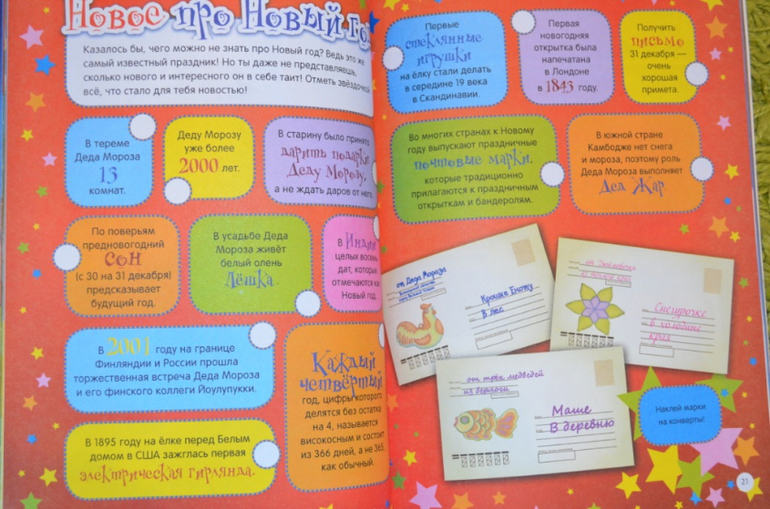 Новое про Новый го
Казалось бы, чего можно не знать про Новый год? Ведь это же
самый известный праздник! Но ты даже не представляешь,
сколько нового и интересного он в себе таит! Отметь звёздочкой
всё, что стало для тебя новостью!
В тереме
Деда Мороза
13
комнат.
Деду Морозу
уже более
2000 лет.
В старину было принято
дарить подарки
Деду Морозу,
а не ждать даров от него.
По поверьям
предновогодний
сон
(с 30 на 31 декабря)
предсказывает
будущий год.
В усадьбе Деда
Мороза живёт
белый олень
Лёшка.
В Индии
целых восемь
дат, которые
отмечаются как
Новый год.
В 2001 году на границе
Финляндии и России прошла
торжественная встреча Деда Мороза
и его финского коллеги Йоулупукки.
Каждый
четвёртый
год, цифры которого
делятся без остатка
на 4, называется
високосным и состоит
из 366 дней, а не 365,
как обычный.
В 1895 году на ёлке перед Белым
домом в США зажглась первая
электрическая гирлянда.
Первые
стеклянные
игрушки
на ёлку стали делать
в середине 19 века
в Скандинавии.
Первая
новогодняя
открытка была
напечатана
в Лондоне
в 1843 году.
Получить
письмо
31 декабря —
очень
хорошая
примета.
Во многих странах к Новому
году выпускают праздничные
почтовые марки,
которые традиционно
прилагаются к праздничным
открыткам и бандеролям.
В южной стране
Камбодже нет снега
и мороза, поэтому роль
Деда Мороза выполняет
Дед Жар
от Деда Мороза
Крошке Еноту
В лес
от
Снегурочке
в холодный
край
от трёх медведей
из берлоги
Маше
В деревню
Наклей марки
на конверты!
21